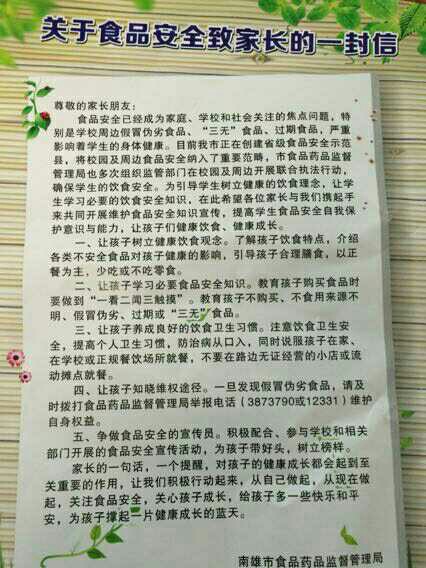 关于食品安全致家长的一封信
尊敬的家长朋友：
食品安全已经成为家庭、学校和社会关注的焦点问题，特
别是学校周边假冒伪劣食品、“三无”食品、过期食品，严重
影响着学生的身体健康。目前我市正在创建省级食品安全示范
县，将校园及周边食品安全纳入了重要范畴，市食品药品监督
管理局也多次组织监管部门在校园及周边开展联合执法行动，
确保学生的饮食安全。为引导学生树立健康的饮食理念，让学
生学习必要的饮食安全知识，在此希望各位家长与我们携起手
来共同开展维护食品安全知识宣传，提高学生食品安全自我保
护意识与能力，让孩子们健康饮食、健康成长。
一、让孩子树立健康饮食观念。了解孩子饮食特点，介绍
各类不安全食品对孩子健康的影响，引导孩子合理膳食，以正
餐为主，少吃或不吃零食。
二、让孩子学习必要食品安全知识。教育孩子购买食品时
要做到“一看二闻三触摸”。教育孩子不购买、不食用来源不
明、假冒伪劣、过期或“三无”食品。
三、让孩子养成良好的饮食卫生习惯。注意饮食卫生安
全，提高个人卫生习惯，防治病从口入，同时说服孩子在家、
在学校或正规餐饮场所就餐，不要在路边无证经营的小店或流
动摊点就餐。
四、让孩子知晓维权途径。一旦发现假冒伪劣食品，请及
时拨打食品药品监督管理局举报电话（3873790或12331）维护
自身权益。
五、争做食品安全的宣传员。积极配合、参与学校和相关
部门开展的食品安全宣传活动，为孩子带好头，树立榜样。
家长的一句话，一个提醒，对孩子的健康成长都会起到至
关重要的作用，让我们积极行动起来，从自己做起，从现在做
起，关注食品安全，关心孩子成长，给孩子多一些快乐和平
安，为孩子撑起一片健康成长的蓝天。
南雄市食品药品监督管理局